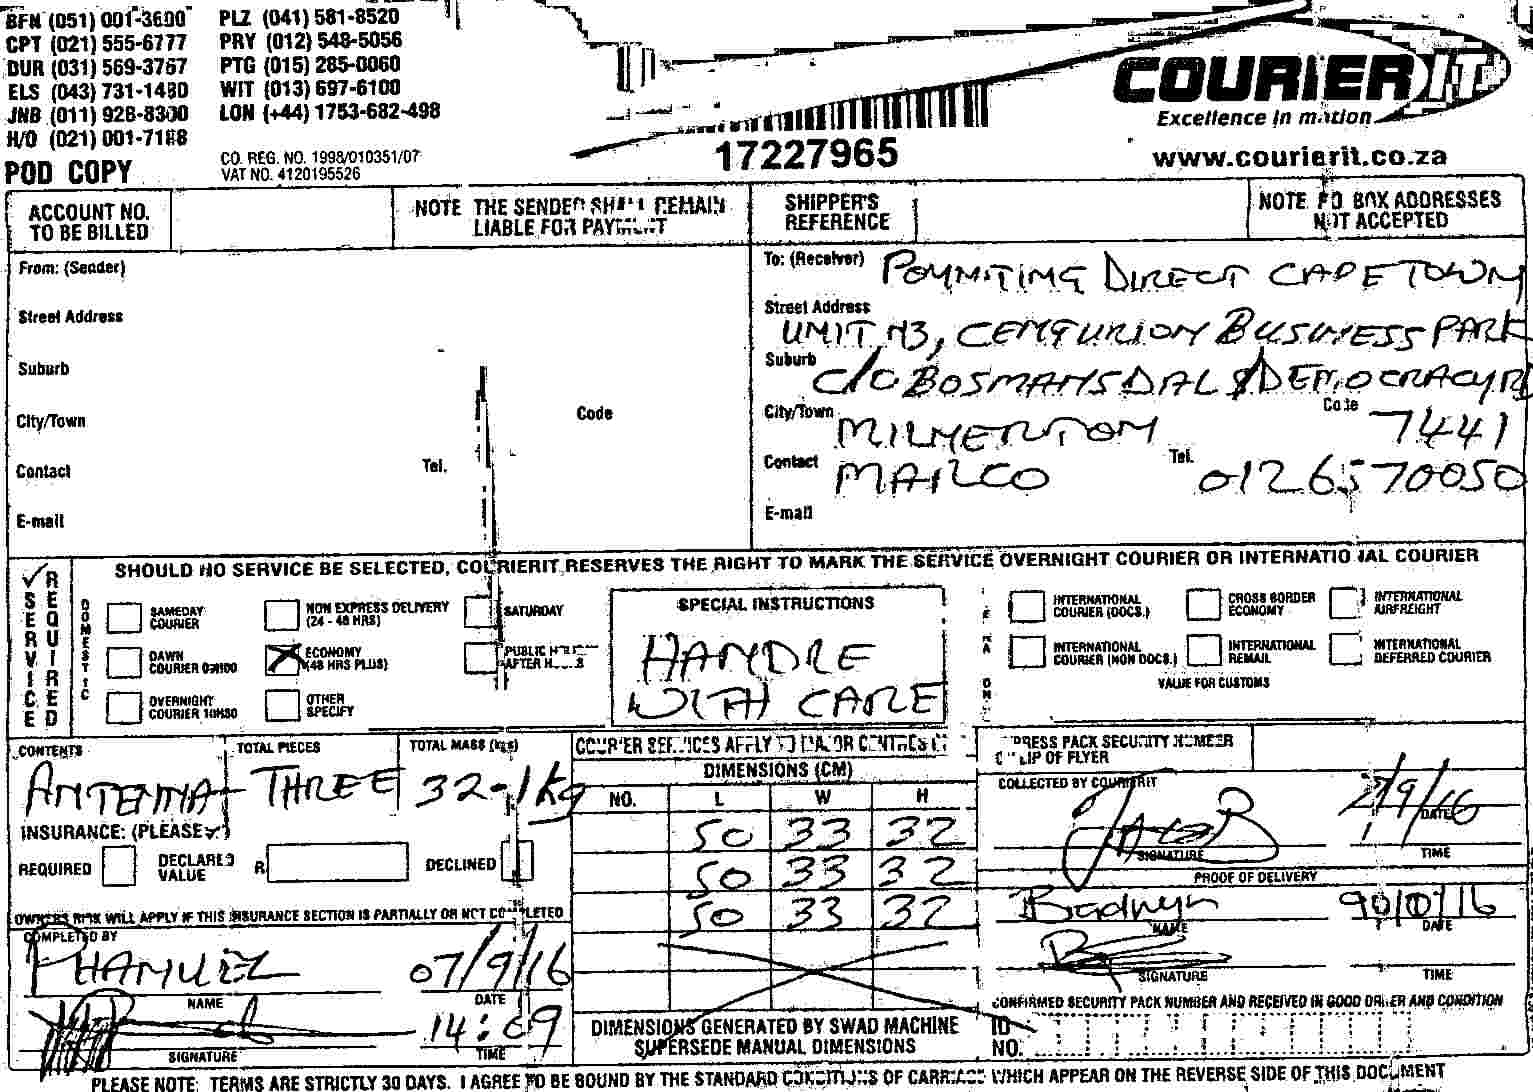 BFN (051) 001-3600 PLZ (041) 581-8520
CPT (021) 555-6777 PRY (012) 548-5056
DUR (031) 569-3767 PTG (015) 285-0060
ELS (043) 731-1480 WIT (013) 697-6100
JNB (011) 928-8300 LON (+44) 1753-682-498
H/O (021) 001-7188
POD COPY
CO. REG. NO. 1998/010351/07
VAT NO. 4120195526
COURIER IT
Excellence in motion
17227965
www.courierit.co.za
ACCOUNT NO. TO BE BILLED
NOTE THE SENDER SHALL REMAIN LIABLE FOR PAYMENT
SHIPPER'S REFERENCE
NOTE PO BOX ADDRESSES NOT ACCEPTED
From: (Sender)
Street Address
Suburb
City/Town Code
Contact Tel.
E-mail
To: (Receiver) POYNTING DIRECT CAPE TOWN
Street Address UNIT N3, CENTURION BUSINESS PARK
Suburb C/O BOSMANSDAL & DEMOCRACY RD
City/Town MILNERTON Code 7441
Contact MARCO Tel. 0126570050
E-mail
SHOULD NO SERVICE BE SELECTED, COURIERIT RESERVES THE RIGHT TO MARK THE SERVICE OVERNIGHT COURIER OR INTERNATIONAL COURIER
✓ SERVICE REQUIRED
DOMESTIC
SAMEDAY COURIER
NON EXPRESS DELIVERY (24 - 48 HRS)
SATURDAY
DAWN COURIER 09H00
ECONOMY (48 HRS PLUS)
PUBLIC
AFTER
OVERNIGHT COURIER 10H30
OTHER SPECIFY
SPECIAL INSTRUCTIONS
HANDLE
WITH CARE
INTERNATIONAL COURIER (DOCS.)
CROSS BORDER ECONOMY
INTERNATIONAL AIRFREIGHT
INTERNATIONAL COURIER (NON DOCS.)
INTERNATIONAL REMAIL
INTERNATIONAL DEFERRED COURIER
VALUE FOR CUSTOMS
CONTENTS TOTAL PIECES TOTAL MASS (kgs)
ANTENNA THREE 32-1kg
INSURANCE: (PLEASE ✓)
REQUIRED DECLARED VALUE R DECLINED
OWNERS RISK WILL APPLY IF THIS INSURANCE SECTION IS PARTIALLY OR NOT COMPLETED
COMPLETED BY
07/9/16
NAME DATE
14:09
SIGNATURE TIME
COURIER SERVICES APPLY TO MAJOR CENTRES
DIMENSIONS (CM)
NO. L W H
50 33 32
50 33 32
50 33 32
DIMENSIONS GENERATED BY SWAD MACHINE
SUPERSEDE MANUAL DIMENSIONS
PRESS PACK SECURITY NUMBER
OF FLYER
COLLECTED BY COURIERIT
DATE
SIGNATURE TIME
PROOF OF DELIVERY
NAME DATE
SIGNATURE TIME
CONFIRMED SECURITY PACK NUMBER AND RECEIVED IN GOOD ORDER AND CONDITION
ID NO.
PLEASE NOTE: TERMS ARE STRICTLY 30 DAYS. I AGREE TO BE BOUND BY THE STANDARD CONDITIONS OF CARRIAGE WHICH APPEAR ON THE REVERSE SIDE OF THIS DOCUMENT